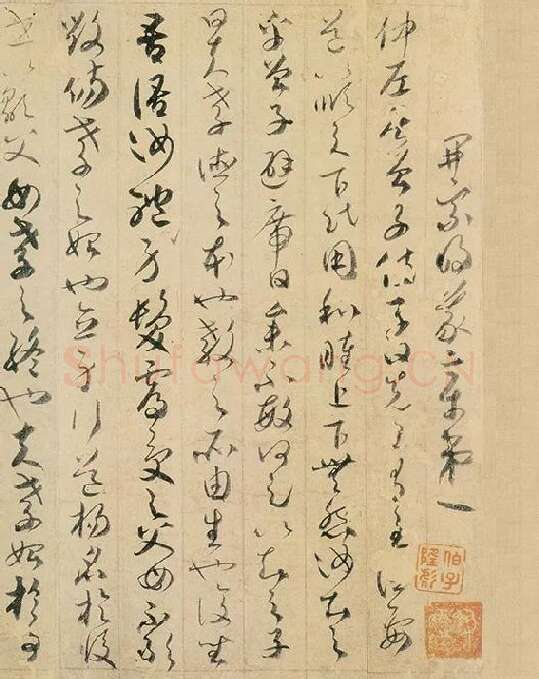 開宗明義章第一
仲尼居曾子侍子曰先王有至德要
道以順天下民用和睦上下無怨汝知之
乎曾子避席曰參不敏何足以知之子
曰夫孝德之本也教之所由生也復坐
吾語汝身體髮膚受之父母不敢
毀傷孝之始也立身行道揚名於後
世以顯父母孝之終也夫孝始於事
Shufawang.CN